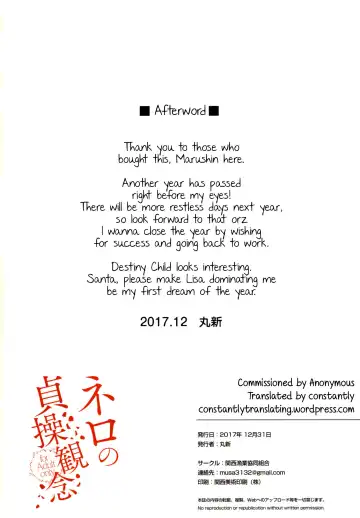 ■ Afterword ■
Thank you to those who
bought this, Marushin here.
Another year has passed
right before my eyes!
There will be more restless days next year,
so look forward to that orz
I wanna close the year by wishing
for success and going back to work.
Destiny Child looks interesting.
Santa, please make Lisa dominating me
be my first dream of the year.
2017.12 丸新
ネロの
貞操観念
for Adult only
Commissioned by Anonymous
Translated by constantly
constantlytranslating.wordpress.com
発行日:2017年 12月31日
発行者:丸新
サークル:関西漁業協同組合
連絡先:musa3132@gmail.com
印刷:関西美術印刷(株)
本誌の内容の転載、複製、Webへのアップロード等を一切禁じます。
No reproduction or republication without written permission.